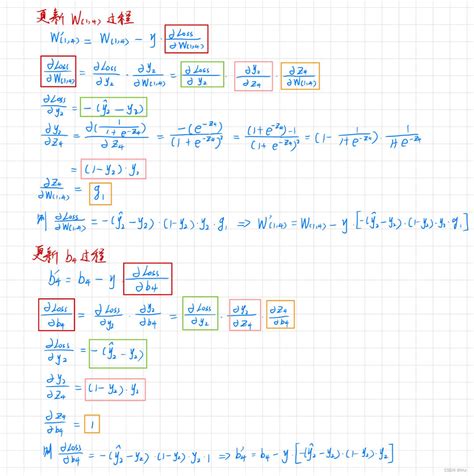 更新 W(1,4) 过程
W'(1,4) = W(1,4) - η · ∂Loss/∂W(1,4)
∂Loss/∂W(1,4) = ∂Loss/∂y₂ · ∂y₂/∂W(1,4) = ∂Loss/∂y₂ · ∂y₂/∂z₄ · ∂z₄/∂W(1,4)
∂Loss/∂y₂ = -(ŷ₂ - y₂)
∂y₂/∂z₄ = ∂(1/(1+e^(-z₄)))/∂z₄ = -(e^(-z₄))/(1+e^(-z₄))² = ((1+e^(-z₄))-1)/(1+e^(-z₄))² = (1 - 1/(1+e^(-z₄))) · 1/(1+e^(-z₄))
= (1-y₂) · y₂
∂z₄/∂W(1,4) = g₁
则 ∂Loss/∂W(1,4) = -(ŷ₂ - y₂) · (1-y₂) · y₂ · g₁ ⇒ W'(1,4) = W(1,4) - η · [-(ŷ₂ - y₂) · (1-y₂) · y₂ · g₁]
更新 b₄ 过程
b₄' = b₄ - η · ∂Loss/∂b₄
∂Loss/∂b₄ = ∂Loss/∂y₂ · ∂y₂/∂b₄ = ∂Loss/∂y₂ · ∂y₂/∂z₄ · ∂z₄/∂b₄
∂Loss/∂y₂ = -(ŷ₂ - y₂)
∂y₂/∂z₄ = (1-y₂) · y₂
∂z₄/∂b₄ = 1
则 ∂Loss/∂b₄ = -(ŷ₂ - y₂) · (1-y₂) · y₂ · 1 ⇒ b₄' = b₄ - η · [-(ŷ₂ - y₂) · (1-y₂) · y₂]